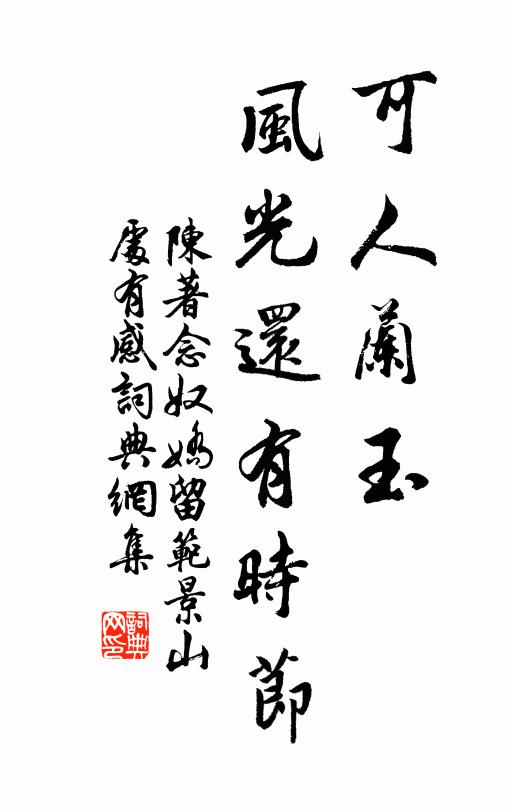 可人蘭玉
風光還有時節
陳著念奴嬌留範景山
處有感詞典網集
詞典
网印